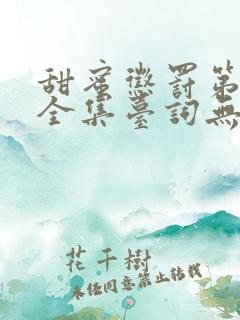 甜蜜懲罰第
全集臺詞無
花千樹
未经同意禁止转载